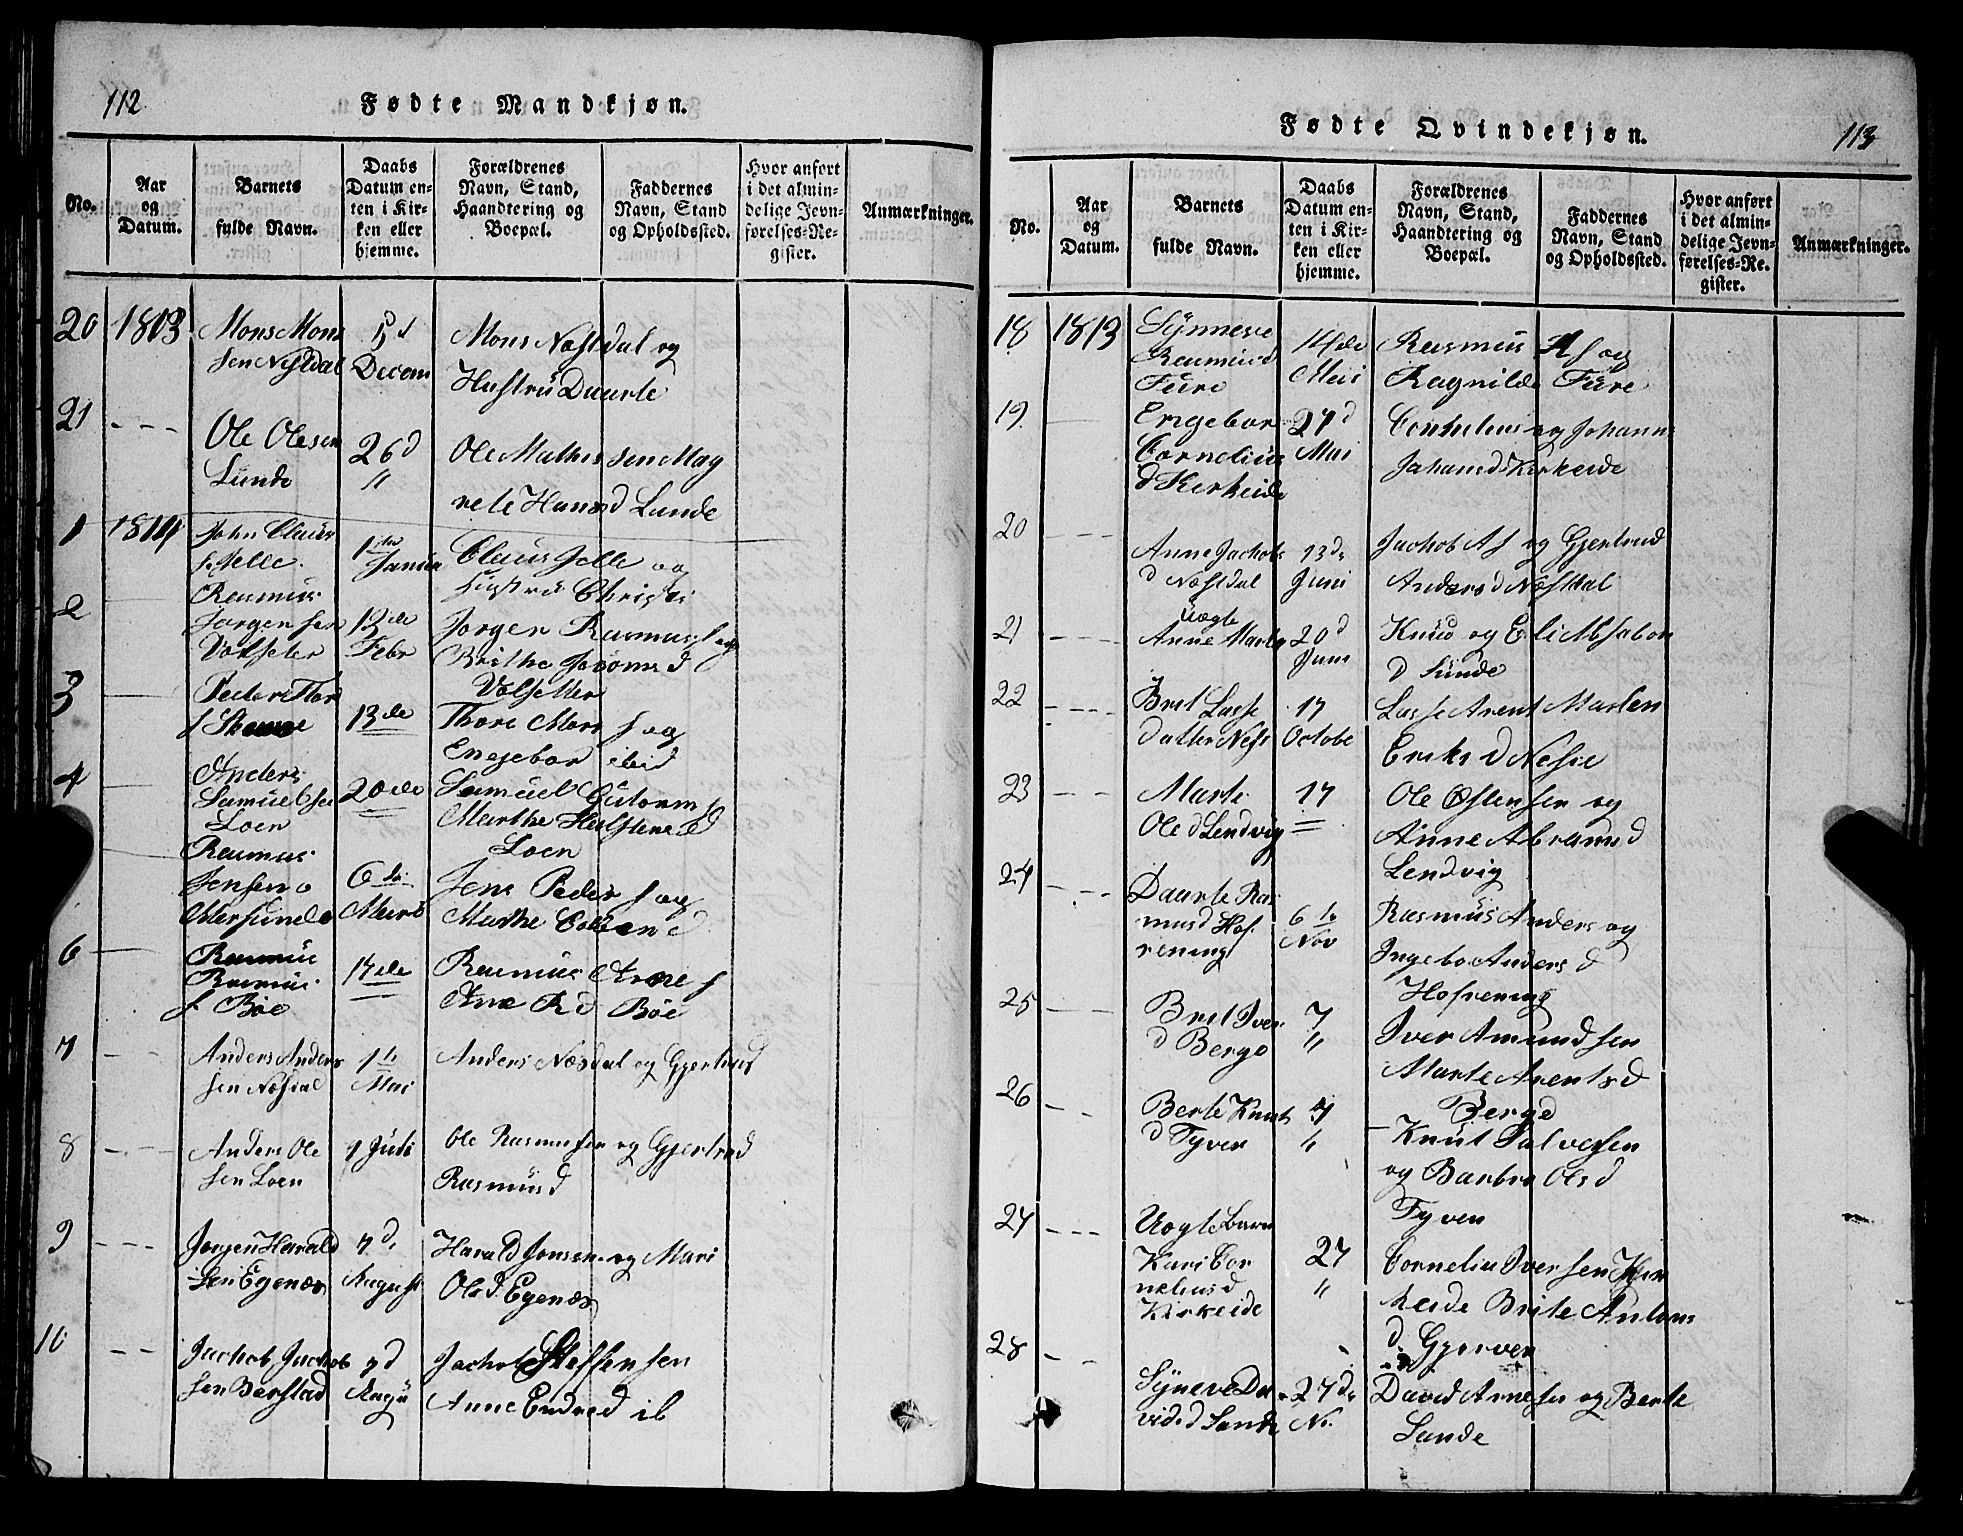 112.
Fødte Mandkjøn.
No.
Aar
og
Datum.
Barnets
fulde Navn.
Daabs
Datum en-
ten i Kir-
ken eller
hjemme.
Forældrenes
Navn, Stand,
Haandtering og
Boepæl.
Faddernes
Navn, Stand
og Opholdssted.
Hvor anført
i det almin-
delige Jevn-
førelses-Re-
gister.
Anmærkninger.
20 1813 Mons Mons
sen Nestdal
5d
Decem
Mons Nestdal og
Hustru Daarte
21 - - -
Ole Olesen
Lunde
26d
"
Ole Mathissen Mag
rete Hansd Lunde
1 1814
John Claus
s Jelle
1te
Januar
Claus Jelle og
Hustru Christi
2
Rasmus
Jørgensen
Volseter
13de
Febr
Jørgen Rasmus s og
Brithe
Volsetter
3
Peder Thor
s
13de
Thore Mons s og
Engebor ibid
4
Anders
Samuelsen
Loen
20de
Samuel Gutorm s
Marthe Halstend
Loen
Rasmus
Jensen
6te
Marts
Jens Peder s og
Marthe
6
Rasmus
Rasmus
s Böe
17de
Rasmus Arne s
Ane R d Böe
7 - - -
Anders Anders
sen Nesdal
1te
Mai
Anders Næsdal og Gjertrud
8 - - -
Anders Ole
sen Loen
7 Juli
Ole Rasmusen og Gjertrud
Rasmusd
9 - - -
Jørgen Harald
sen Egenæs
7d.
August
Harald Jonsen og Mari
Olsd Egenæs
10 - -
Jachob Jachob
sen Berstad
7d
Augu
Jachob Steffensen
Anne Endred ib
113
Fødte Qvindekjøn.
No.
Aar
og
Datum.
Barnets
fulde Navn.
Daabs
Datum en-
ten i Kir-
ken eller
hjemme.
Forældrenes
Navn, Stand,
Haandtering og
Boepæl.
Faddernes
Navn, Stand
og Opholdssted.
Hvor anført
i det almin-
delige Jevn-
førelses-Re-
gister.
Anmærkninger.
18 1813
Synneve
Rasmusd
Fure
14de
Mai
Rasmus A s og
Ragnilde Fure
19
Engebor
Cornelius
d Kirkeide
27d
Mai
Cornelius og Johann
Johansd Kirkeide
20 - - -
Anne Jachobs
d Nestdal
13de
Juni
Jachob A s og Gjertrud
Andersd Nestdal
21
Uægte
Anne Marte
20d
Juni
Knud og Eli Absalon
d Sunde
22 - - -
Brit Lasse
datter Nes
17
Octobe
Lasse Arent Marten
Eriks d Nesse
23 - - -
Marte
Ole d Lendvig
17
Ole Østensen og
Anne Abramsd
Lendvig
24 - - -
Daarte Ras
musd Hof
rening
6te
Nov
Rasmus Anders og
Ingebo Anders d
Hofrening
25 - - -
Brit Iver
d Berge
7
"
Iver Amundsen
Marte Arentsd
Berge
26 - - -
Berte Knut
d Tyven
7
"
Knut Salvesen
og Barbro Olsd
Tyven
27 - - -
Uægte Barn
Kari Cor
neliusd
Kirkeide
27
"
Cornelius Iversen Kir
keide Brite Antons
d. Gjerven
28 - -
Syneve Da
vids d Sande
27de
No.
David Arnesen og Berte
Sande